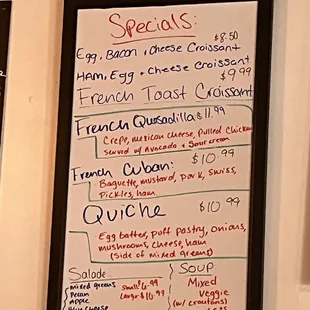 Specials:
$8.50
Egg, Bacon + Cheese Croissant
Ham, Egg + Cheese Croissant
$9.99
French Toast Croissant
French Quesadilla $11.99
Crepe, mexican cheese, pulled chicken
served w/ Avocado + Sour cream
French Cuban: $10.99
Baguette, mustard, pork, swiss,
pickles, ham
Quiche $10.99
Egg batter, puff pastry, onions,
mushrooms, cheese, ham
(side of mixed greens)
Salade
mixed greens
Pecan
Apple
Blue cheese
Small $6.99
Large $10.99
Soup
Mixed
Veggie
(w/ croutons)